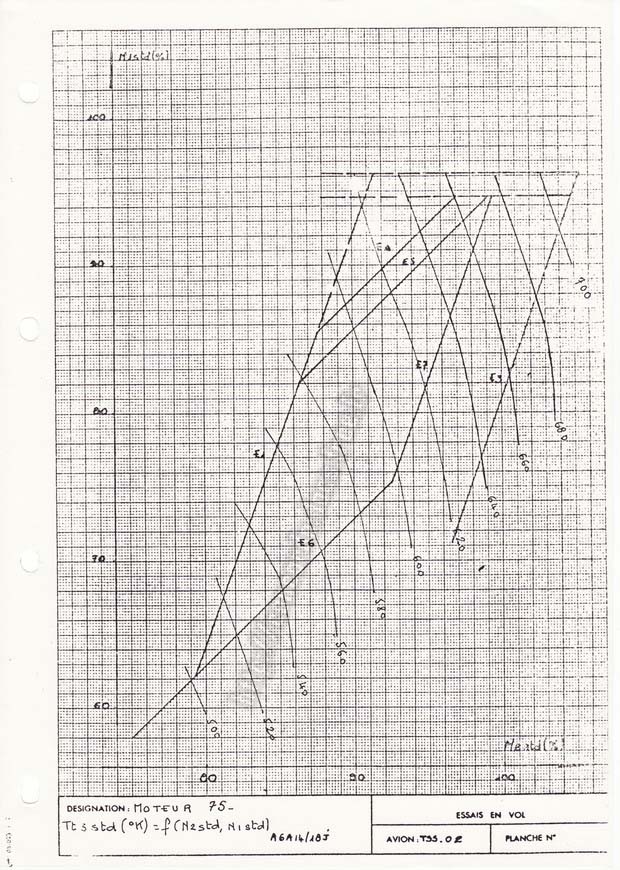 N1std(%)
100
90
80
70
60
E4
E5
E7
E3
E1
E6
700
680
660
640
620
600
580
560
540
520
500
80
90
100
DESIGNATION: MOTEUR 75-
Tt3 std (°K) = f (N2std, N1std)
A6A14/18J
ESSAIS EN VOL
AVION: TSS.02
PLANCHE N°